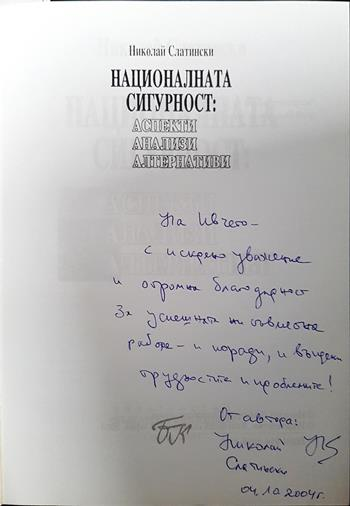 Николай Слатински
НАЦИОНАЛНАТА
СИГУРНОСТ:
АСПЕКТИ
АНАЛИЗИ
АЛТЕРНАТИВИ
На Ивчето –
с искрено уважение
и огромна благодарност
За успешната ни съвместна
работа – и поради, и въпреки
трудностите и проблемите!
От автора:
Николай
Слатински
04.10.2004г.
БК